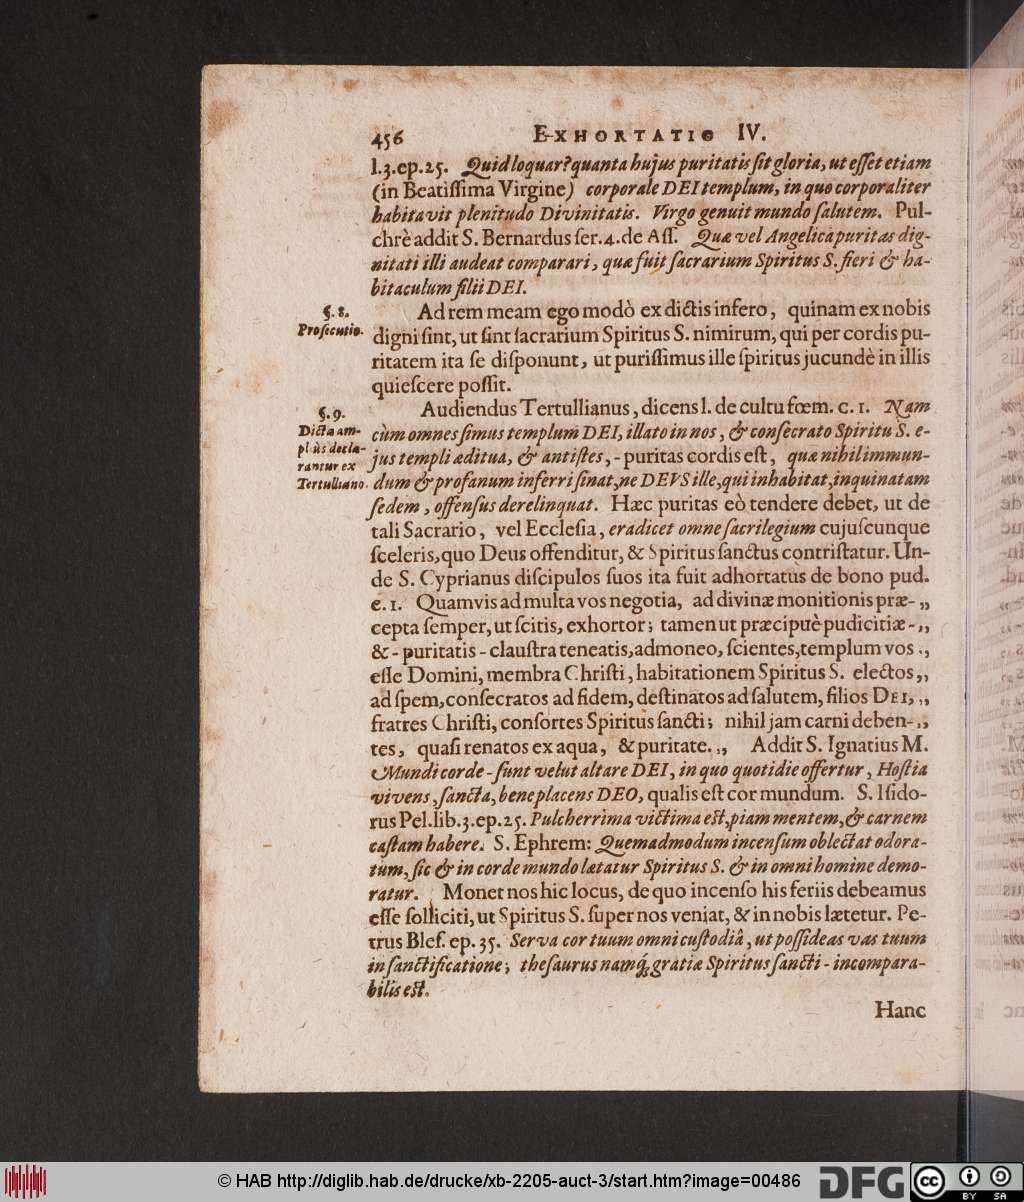 456 EXHORTATIO IV.
l.3.ep.25. Quid loquar? quanta hujus puritatis sit gloria, ut esset etiam
(in Beatissima Virgine) corporale DEI templum, in quo corporaliter
habitavit plenitudo Divinitatis. Virgo genuit mundo salutem. Pul-
chrè addit S. Bernardus ser. 4. de Ass. Quæ vel Angelica puritas dig-
nitati illi audeat comparari, quæ fuit sacrarium Spiritus S. fieri & ha-
bitaculum filii DEI.
§. 8.
Prosecutio.
Ad rem meam ego modò ex dictis infero, quinam ex nobis
digni sint, ut sint sacrarium Spiritus S. nimirum, qui per cordis pu-
ritatem ita se disponunt, ut purissimus ille spiritus jucundè in illis
quiescere possit.
§. 9.
Dicta am-
pliùs decla-
rantur ex
Tertulliano.
Audiendus Tertullianus, dicens l. de cultu fœm. c. 1. Nam
cùm omnes simus templum DEI, illato in nos, & consecrato Spiritu S. e-
jus templi æditua, & antistes, - puritas cordis est, quæ nihil immun-
dum & profanum inferri sinat, ne DEUS ille, qui inhabitat, inquinatam
sedem, offensus derelinquat. Hæc puritas eò tendere debet, ut de
tali Sacrario, vel Ecclesia, eradicet omne sacrilegium cujuscunque
sceleris, quo Deus offenditur, & Spiritus sanctus contristatur. Un-
de S. Cyprianus discipulos suos ita fuit adhortatus de bono pud.
c. 1. Quamvis ad multa vos negotia, ad divinæ monitionis præ- „
cepta semper, ut scitis, exhortor; tamen ut præcipuè pudicitiæ - „
& - puritatis - claustra teneatis, admoneo, scientes, templum vos „
esse Domini, membra Christi, habitationem Spiritus S. electos „
ad spem, consecratos ad fidem, destinatos ad salutem, filios DEI, „
fratres Christi, consortes Spiritus sancti; nihil jam carni deben- „
tes, quasi renatos ex aqua, & puritate. „ Addit S. Ignatius M.
Mundi corde - sunt velut altare DEI, in quo quotidie offertur, Hostia
vivens, sancta, beneplacens DEO, qualis est cor mundum. S. Isido-
rus Pel. lib. 3. ep. 25. Pulcherrima victima est, piam mentem, & carnem
castam habere. S. Ephrem: Quemadmodum incensum oblectat odora-
tum, sic & in corde mundo lætatur Spiritus S. & in omni homine demo-
ratur. Monet nos hic locus, de quo incenso his feriis debeamus
esse solliciti, ut Spiritus S. super nos veniat, & in nobis lætetur. Pe-
trus Bles. ep. 35. Serva cor tuum omni custodiâ, ut possideas vas tuum
in sanctificatione; thesaurus namq́; gratiæ Spiritus sancti - incompara-
bilis est.
Hanc
© HAB http://diglib.hab.de/drucke/xb-2205-auct-3/start.htm?image=00486
DFG
cc
BY SA